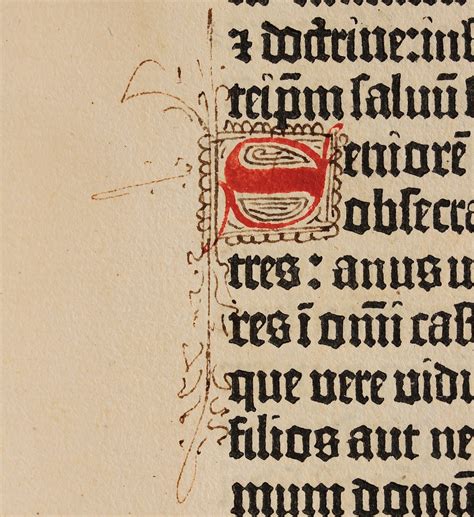 ⁊ doctrine: in
teip̄m ſaluū
Seniorē
obſecra
tres: anus u
res ī om̄i caſ
que vere vidu
filios aut ne
mum domū